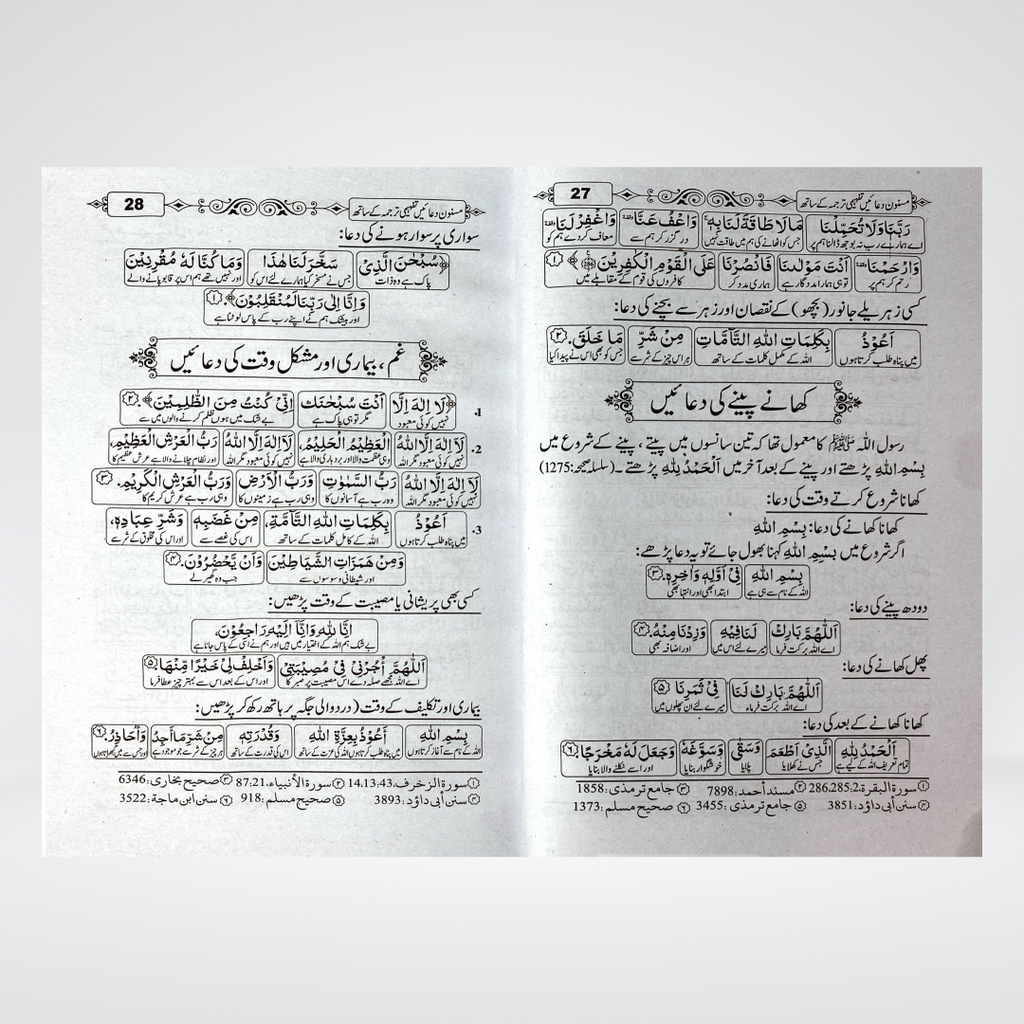 مسنون دعائیں تفہیمی ترجمہ کے ساتھ
27
رَبَّنَا وَلَا تُحَمِّلْنَا مَا لَا طَاقَةَ لَنَا بِهٖ ۚ وَاعْفُ عَنَّا وَاغْفِرْ لَنَا
اے ہمارے رب نہ بوجھ ڈالنا ہم پر جس کو اٹھانے کی ہم میں طاقت نہیں در گزر کر ہم سے معاف کر دے ہم کو
وَارْحَمْنَا اَنْتَ مَوْلٰىنَا فَانْصُرْنَا عَلَى الْقَوْمِ الْكٰفِرِيْنَ ﴾ ①
رحم کر ہم پر تو ہی ہمارا مددگار ہے ہماری مدد کر کافروں کی قوم کے مقابلے میں
کسی زہریلے جانور (بچھو) کے نقصان اور زہر سے بچنے کی دعا:
اَعُوْذُ بِكَلِمَاتِ اللّٰهِ التَّآمَّاتِ مِنْ شَرِّ مَا خَلَقَ. ②
میں پناہ طلب کرتا ہوں اللہ کے مکمل کلمات کے ساتھ ہر اس چیز کے شر سے جس کو بھی اس نے پیدا کیا
کھانے پینے کی دعائیں
رسول اللہ ﷺ کا معمول تھا کہ تین سانسوں میں پیتے، پینے کے شروع میں
بِسْمِ اللّٰهِ پڑھتے اور پینے کے بعد آخر میں اَلْحَمْدُ لِلّٰهِ پڑھتے۔ (سلسلہ صحیحہ:1275)
کھانا شروع کرتے وقت کی دعا:
کھانا کھانے کی دعا: بِسْمِ اللّٰهِ
اگر شروع میں بِسْمِ اللّٰهِ کہنا بھول جائے تو یہ دعا پڑھے:
بِسْمِ اللّٰهِ فِيْ اَوَّلِهٖ وَاٰخِرِهٖ. ③
اللہ کے نام سے ہی ہے ابتدا بھی اور انتہا بھی
دودھ پینے کی دعا:
اَللّٰهُمَّ بَارِكْ لَنَا فِيْهِ وَزِدْنَا مِنْهُ. ④
اے اللہ برکت فرما میرے لئے اس میں اور اضافہ بھی
پھل کھانے کی دعا:
اَللّٰهُمَّ بَارِكْ لَنَا فِيْ ثَمَرِنَا ⑤
اے اللہ برکت فرما میرے لئے ان پھلوں میں
کھانا کھانے کے بعد کی دعا:
اَلْحَمْدُ لِلّٰهِ الَّذِيْ اَطْعَمَ وَسَقٰى وَسَوَّغَهٗ وَجَعَلَ لَهٗ مَخْرَجًا. ⑥
تمام تعریف اللہ کے لیے ہے جس نے کھلایا پلایا خوشگوار بنایا اور اسے نکلنے والا بنایا
① سورة البقرة،286.285:2 ② مسند أحمد:7898 ③ جامع ترمذي:1858
④ سنن أبي داؤد:3851 ⑤ جامع ترمذي:3455 ⑥ صحيح مسلم:1373
مسنون دعائیں تفہیمی ترجمہ کے ساتھ
28
سواری پر سوار ہونے کی دعا:
﴿سُبْحٰنَ الَّذِيْ سَخَّرَ لَنَا هٰذَا وَمَا كُنَّا لَهٗ مُقْرِنِيْنَ
پاک ہے وہ ذات جس نے مسخر کیا ہمارے لئے اس کو اور نہیں تھے ہم اس پر قابو پانے والے
وَاِنَّا اِلٰى رَبِّنَا لَمُنْقَلِبُوْنَ﴾. ①
اور بیشک ہم نے اپنے رب کے پاس لوٹنا ہے
غم، بیماری اور مشکل وقت کی دعائیں
1. ﴿لَا اِلٰهَ اِلَّا اَنْتَ سُبْحٰنَكَ اِنِّيْ كُنْتُ مِنَ الظّٰلِمِيْنَ﴾. ②
نہیں کوئی معبود مگر تو ہی پاک ہے بے شک میں ہوں ظلم کرنے والوں میں سے
2. لَآ اِلٰهَ اِلَّا اللّٰهُ الْعَظِيْمُ الْحَلِيْمُ، لَآ اِلٰهَ اِلَّا اللّٰهُ رَبُّ الْعَرْشِ الْعَظِيْمِ،
نہیں کوئی معبود مگر اللہ وہی عظمت والا اور بردباری والا ہے نہیں کوئی معبود مگر اللہ اور نظام چلانے والا ہے عرش عظیم کا
لَآ اِلٰهَ اِلَّا اللّٰهُ رَبُّ السَّمٰوٰتِ وَرَبُّ الْاَرْضِ وَرَبُّ الْعَرْشِ الْكَرِيْمِ. ③
نہیں کوئی معبود مگر اللہ وہ رب ہے آسمانوں کا وہی رب ہے زمینوں کا وہی رب ہے عرش کریم کا
3. اَعُوْذُ بِكَلِمَاتِ اللّٰهِ التَّآمَّةِ، مِنْ غَضَبِهٖ وَشَرِّ عِبَادِهٖ،
میں پناہ طلب کرتا ہوں اللہ کے کامل کلمات کے ساتھ اس کی غصے سے اور اس کی مخلوق کے شر سے
وَمِنْ هَمَزَاتِ الشَّيَاطِيْنَ وَاَنْ يَّحْضُرُوْنَ. ④
اور شیطانی وسوسوں سے جب وہ گھیر لے
کسی بھی پریشانی یا مصیبت کے وقت پڑھیں:
اِنَّا لِلّٰهِ وَاِنَّآ اِلَيْهِ رَاجِعُوْنَ،
بے شک ہم اللہ کے اختیار میں ہیں اور ہم نے اسی کے پاس جانا ہے
اَللّٰهُمَّ اْجُرْنِيْ فِيْ مُصِيْبَتِيْ وَاَخْلِفْ لِيْ خَيْرًا مِّنْهَا. ⑤
اے اللہ مجھے صلہ دے اس مصیبت پر صبر کا اور اس کے بعد اس سے بہتر چیز عطا فرما
بیماری اور تکلیف کے وقت (درد والی جگہ پر ہاتھ رکھ کر) پڑھیں:
بِسْمِ اللّٰهِ اَعُوْذُ بِعِزَّةِ اللّٰهِ وَقُدْرَتِهٖ مِنْ شَرِّ مَا اَجِدُ وَاُحَاذِرُ. ⑥
اللہ کے نام سے آغاز کرتا ہوں میں پناہ طلب کرتا ہوں اللہ کی عزت کے ساتھ اس کی قدرت کے ساتھ ہر چیز کے شر سے جو موجود ہے
① سورة الزخرف،14.13:43 ② سورة الأنبياء،87:21 ③ صحيح بخاري:6346
④ سنن أبي داؤد:3893 ⑤ صحيح مسلم:918 ⑥ سنن ابن ماجة:3522